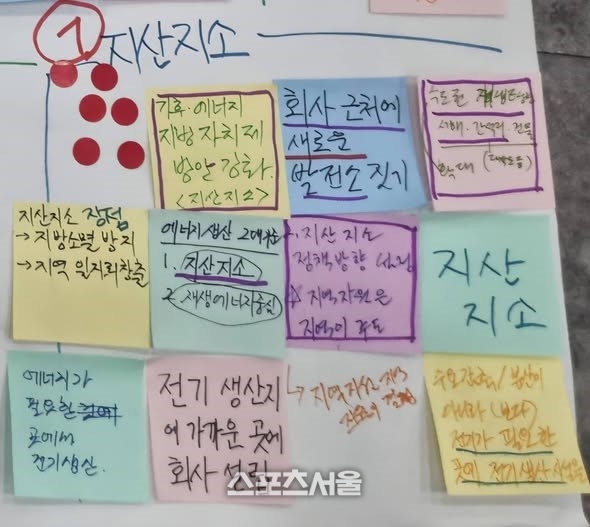 ① 지산지소
기후·에너지
지방 자치제
방안 강화.
<지산지소>
회사 근처에
새로운
발전소 짓기
수도권
서해·간척지·건물
확대
지산지소 장점
→ 지방소멸 방지
→ 지역 일자리창출
에너지생산
1. 지산지소
2. 재생에너지중심
지산지소
정책방향
지역자원은
지역이 주도
지산
지소
에너지가
필요한
곳에서
전기생산.
전기 생산지
에 가까운 곳에
회사 설립
→ 지역자산
수요감축/분산이
아니라 (보다)
전기가 필요한
곳에 전기생산시설을
스포츠서울